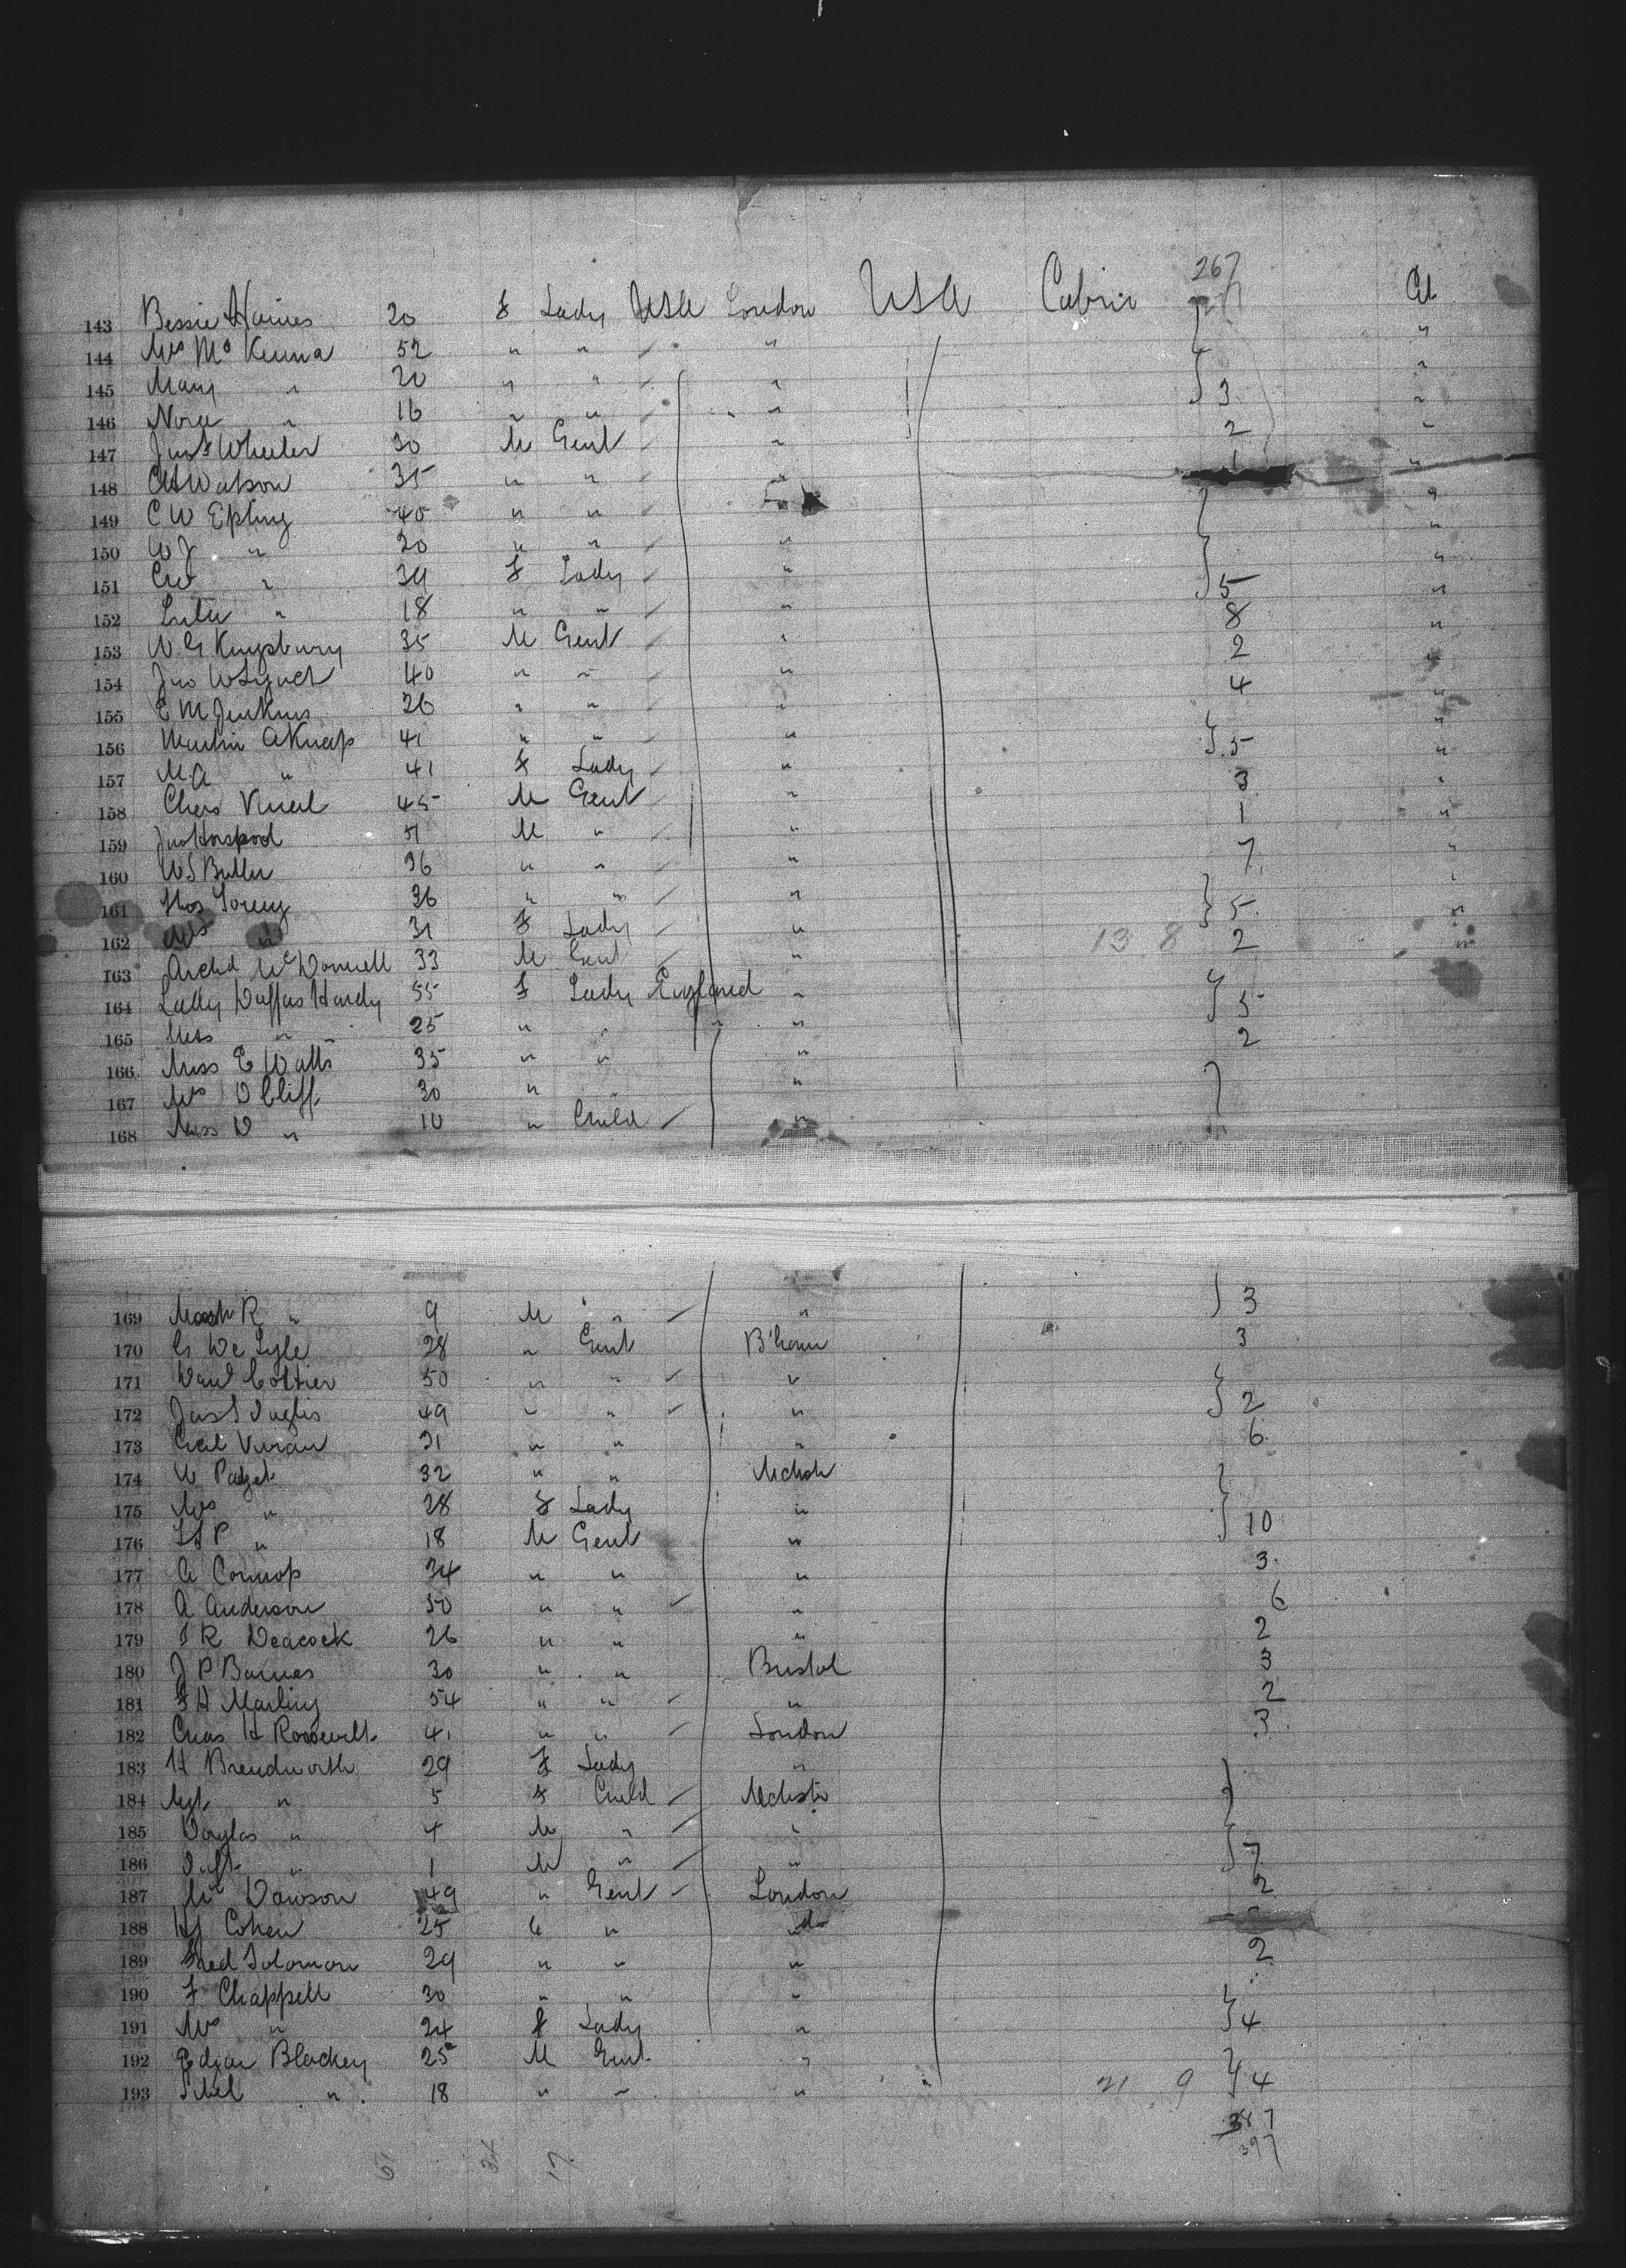 267
143 Bessie Haines 20 F Lady USA London USA Cabin Al
144 Mrs McKenna 52 " " " "
145 Mary " 20 " " " "
146 Nora " 16 " " " 3 "
147 Jno Wheeler 30 M Gent " 2 "
148 Watson 35 " " " 1 "
149 C W Epling 40 " " " "
150 W J " 20 " " " "
151 CW " 39 F Lady " "
152 Lula " 18 " " " 5 "
153 W G Kingsbury 35 M Gent " 8 "
154 Jno W Lynch 40 " " " 2 "
155 E M Jenkins 26 " " " 4 "
156 Martin A Knap 41 " " " "
157 M.A " 41 F Lady " 5 "
158 Chas 45 M Gent " 3 "
159 Jno Horspool 51 M " " 1 "
160 W S Butler 36 " " " 7 "
161 Thos 36 " " " "
162 Mrs " 31 F Lady " 5 "
163 Archd McDonnell 33 M Gent " 13 8 2 "
164 Lady Duffus Hardy 55 F Lady England "
165 Miss " " 25 " " " " 5
166 Miss E Watts 35 " " " 2
167 Mrs D Cliff 30 " "
168 Miss D " 10 " Child "
169 Mast R " 9 M " " 3
170 G De Lyle 28 " Gent B'ham 3
171 Danl Cottier 50 " " "
172 Jas S Inglis 49 " " " 2
173 31 " " " 6
174 W Padget 32 " " Mchstr
175 Mrs " 28 F Lady "
176 P " 18 M Gent " 10
177 A Connop 34 " " " 3
178 A Anderson 50 " " " 6
179 R Deacock 26 " " " 2
180 J P Barnes 30 " " Bristol 3
181 F H Marling 54 " " " 2
182 Chas H Roosevelt 41 " " London 3
183 H Brendworth 29 F Lady "
184 " 5 F Child Mchstr
185 Douglas " 4 M " "
186 Inft " 1 M " " 7
187 Mr Dawson 49 " Gent London 2
188 Cohen 25 " " "
189 Fred Solomon 29 " " " 2
190 F Chappell 30 " " "
191 Mrs " 24 F Lady " 4
192 Edgar Blackey 25 M Gent "
193 " 18 " " " 21 9 4
387
397
61 34 17